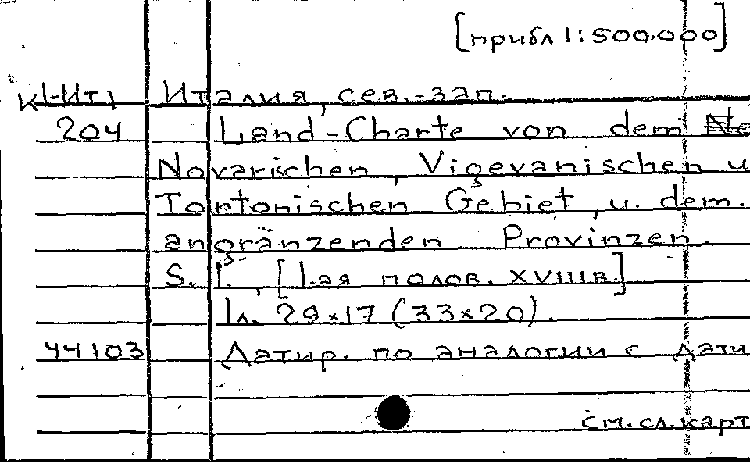 [прибл 1:500.000]
К1-Ит1 Италия, сев.-зап.
204 Land-Charte von dem
Novarischen, Vigevanischen u
Tortonischen Gebiet, u. dem.
angränzenden Provinzen.
S. l., [1-ая полов. XVIII в.]
1 л. 29×17 (33×20).
44103 Датир. по аналогии с дати
см. сл. карт